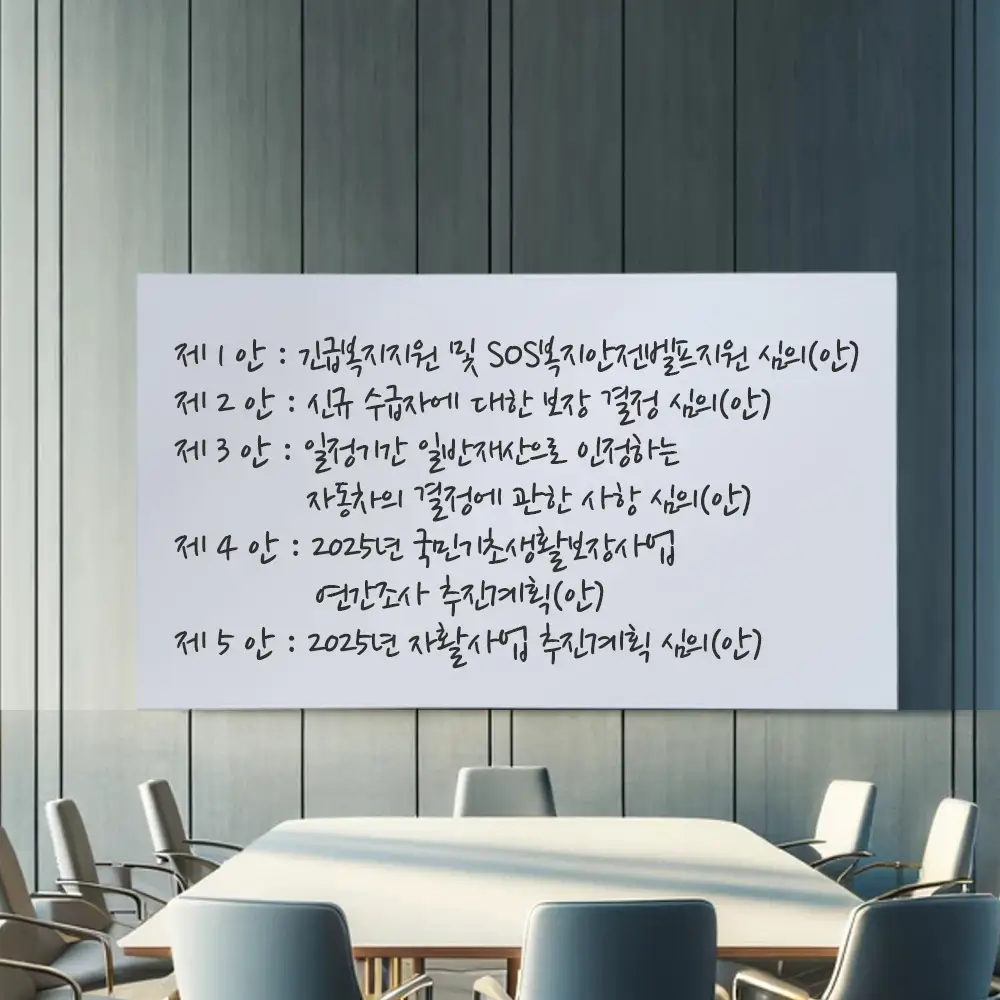 제 1 안 : 긴급복지지원 및 SOS복지안전벨프지원 심의(안)
제 2 안 : 신규 수급자에 대한 보장 결정 심의(안)
제 3 안 : 일정기간 일반재산으로 인정하는
자동차의 결정에 관한 사항 심의(안)
제 4 안 : 2025년 국민기초생활보장사업
연간조사 추진계획(안)
제 5 안 : 2025년 자활사업 추진계획 심의(안)